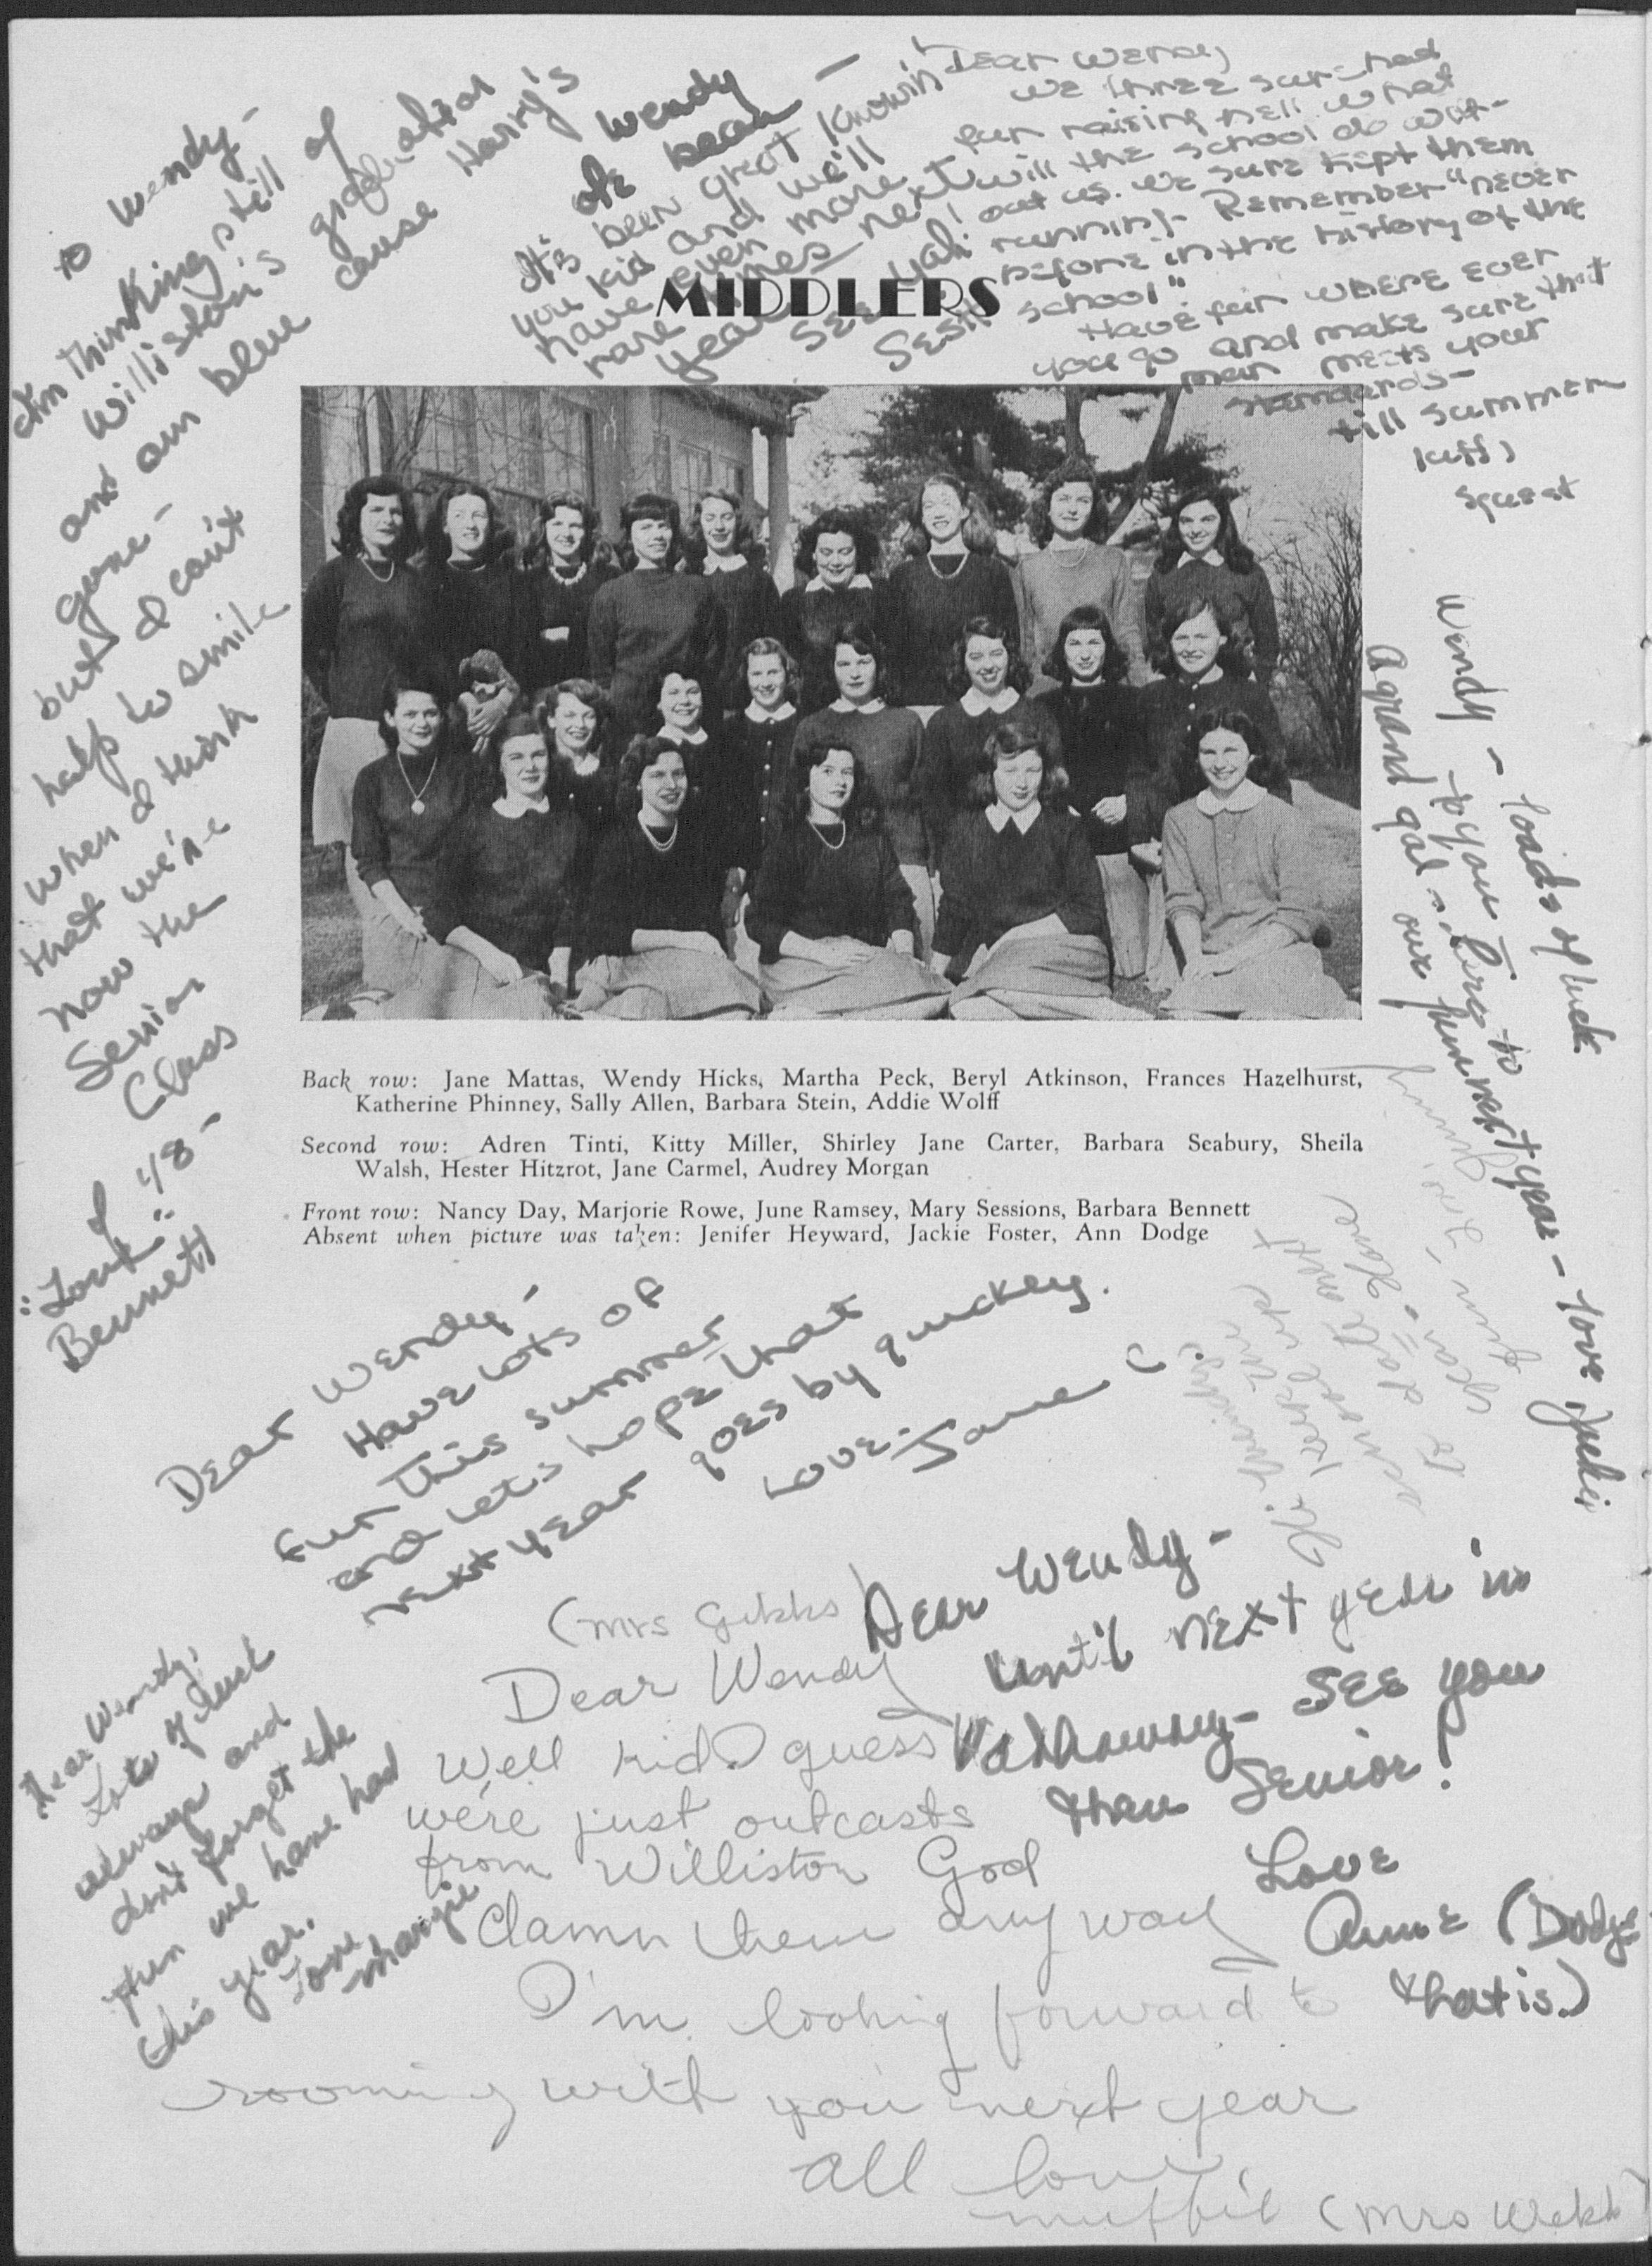 MIDDLERS
to Wendy-
Im thinking still of
Williston's graduation
and our blue
cause Harry's
gone-
but I can't
help to smile
when I think
that we're
now the
Senior
Class
of '48-
"Love"
Bennett
Wendy
ole bean -
It's been great knowin'
you kid and we'll
have even more
rare times next
year
See yah!
Sesh
Dear Wendy
We three sure had
fun raising hell. What
will the school do with-
out us. We sure kept them
running. Remember "never
before in the history of the
school"
Have fun where ever
you go and make sure that
man meets your
standards-
till summer
Wendy - loads of luck
to you - here's to
a grand gal
our fun next year - love, Jackie
Back row: Jane Mattas, Wendy Hicks, Martha Peck, Beryl Atkinson, Frances Hazelhurst,
Katherine Phinney, Sally Allen, Barbara Stein, Addie Wolff
Second row: Adren Tinti, Kitty Miller, Shirley Jane Carter, Barbara Seabury, Sheila
Walsh, Hester Hitzrot, Jane Carmel, Audrey Morgan
Front row: Nancy Day, Marjorie Rowe, June Ramsey, Mary Sessions, Barbara Bennett
Absent when picture was taken: Jenifer Heyward, Jackie Foster, Ann Dodge
Dear Wendy-
Have lots of
fun this summer
and let's hope that
next year goes by quickly.
Love-
Jane C.
Dear Wendy-
Until next year in
Hathaway- See you
then Senior!
Love
Anne (Dodge
that is.)
Dear Wendy,
Lots of luck
always and
don't forget the
fun we have had
this year.
Love
Margie
(Mrs Gibbs)
Dear Wendy
Well kid I guess
we're just outcasts
from Williston God
damn them any way
I'm looking forward to
rooming with you next year
All love,
Muffit (Mrs Webb)